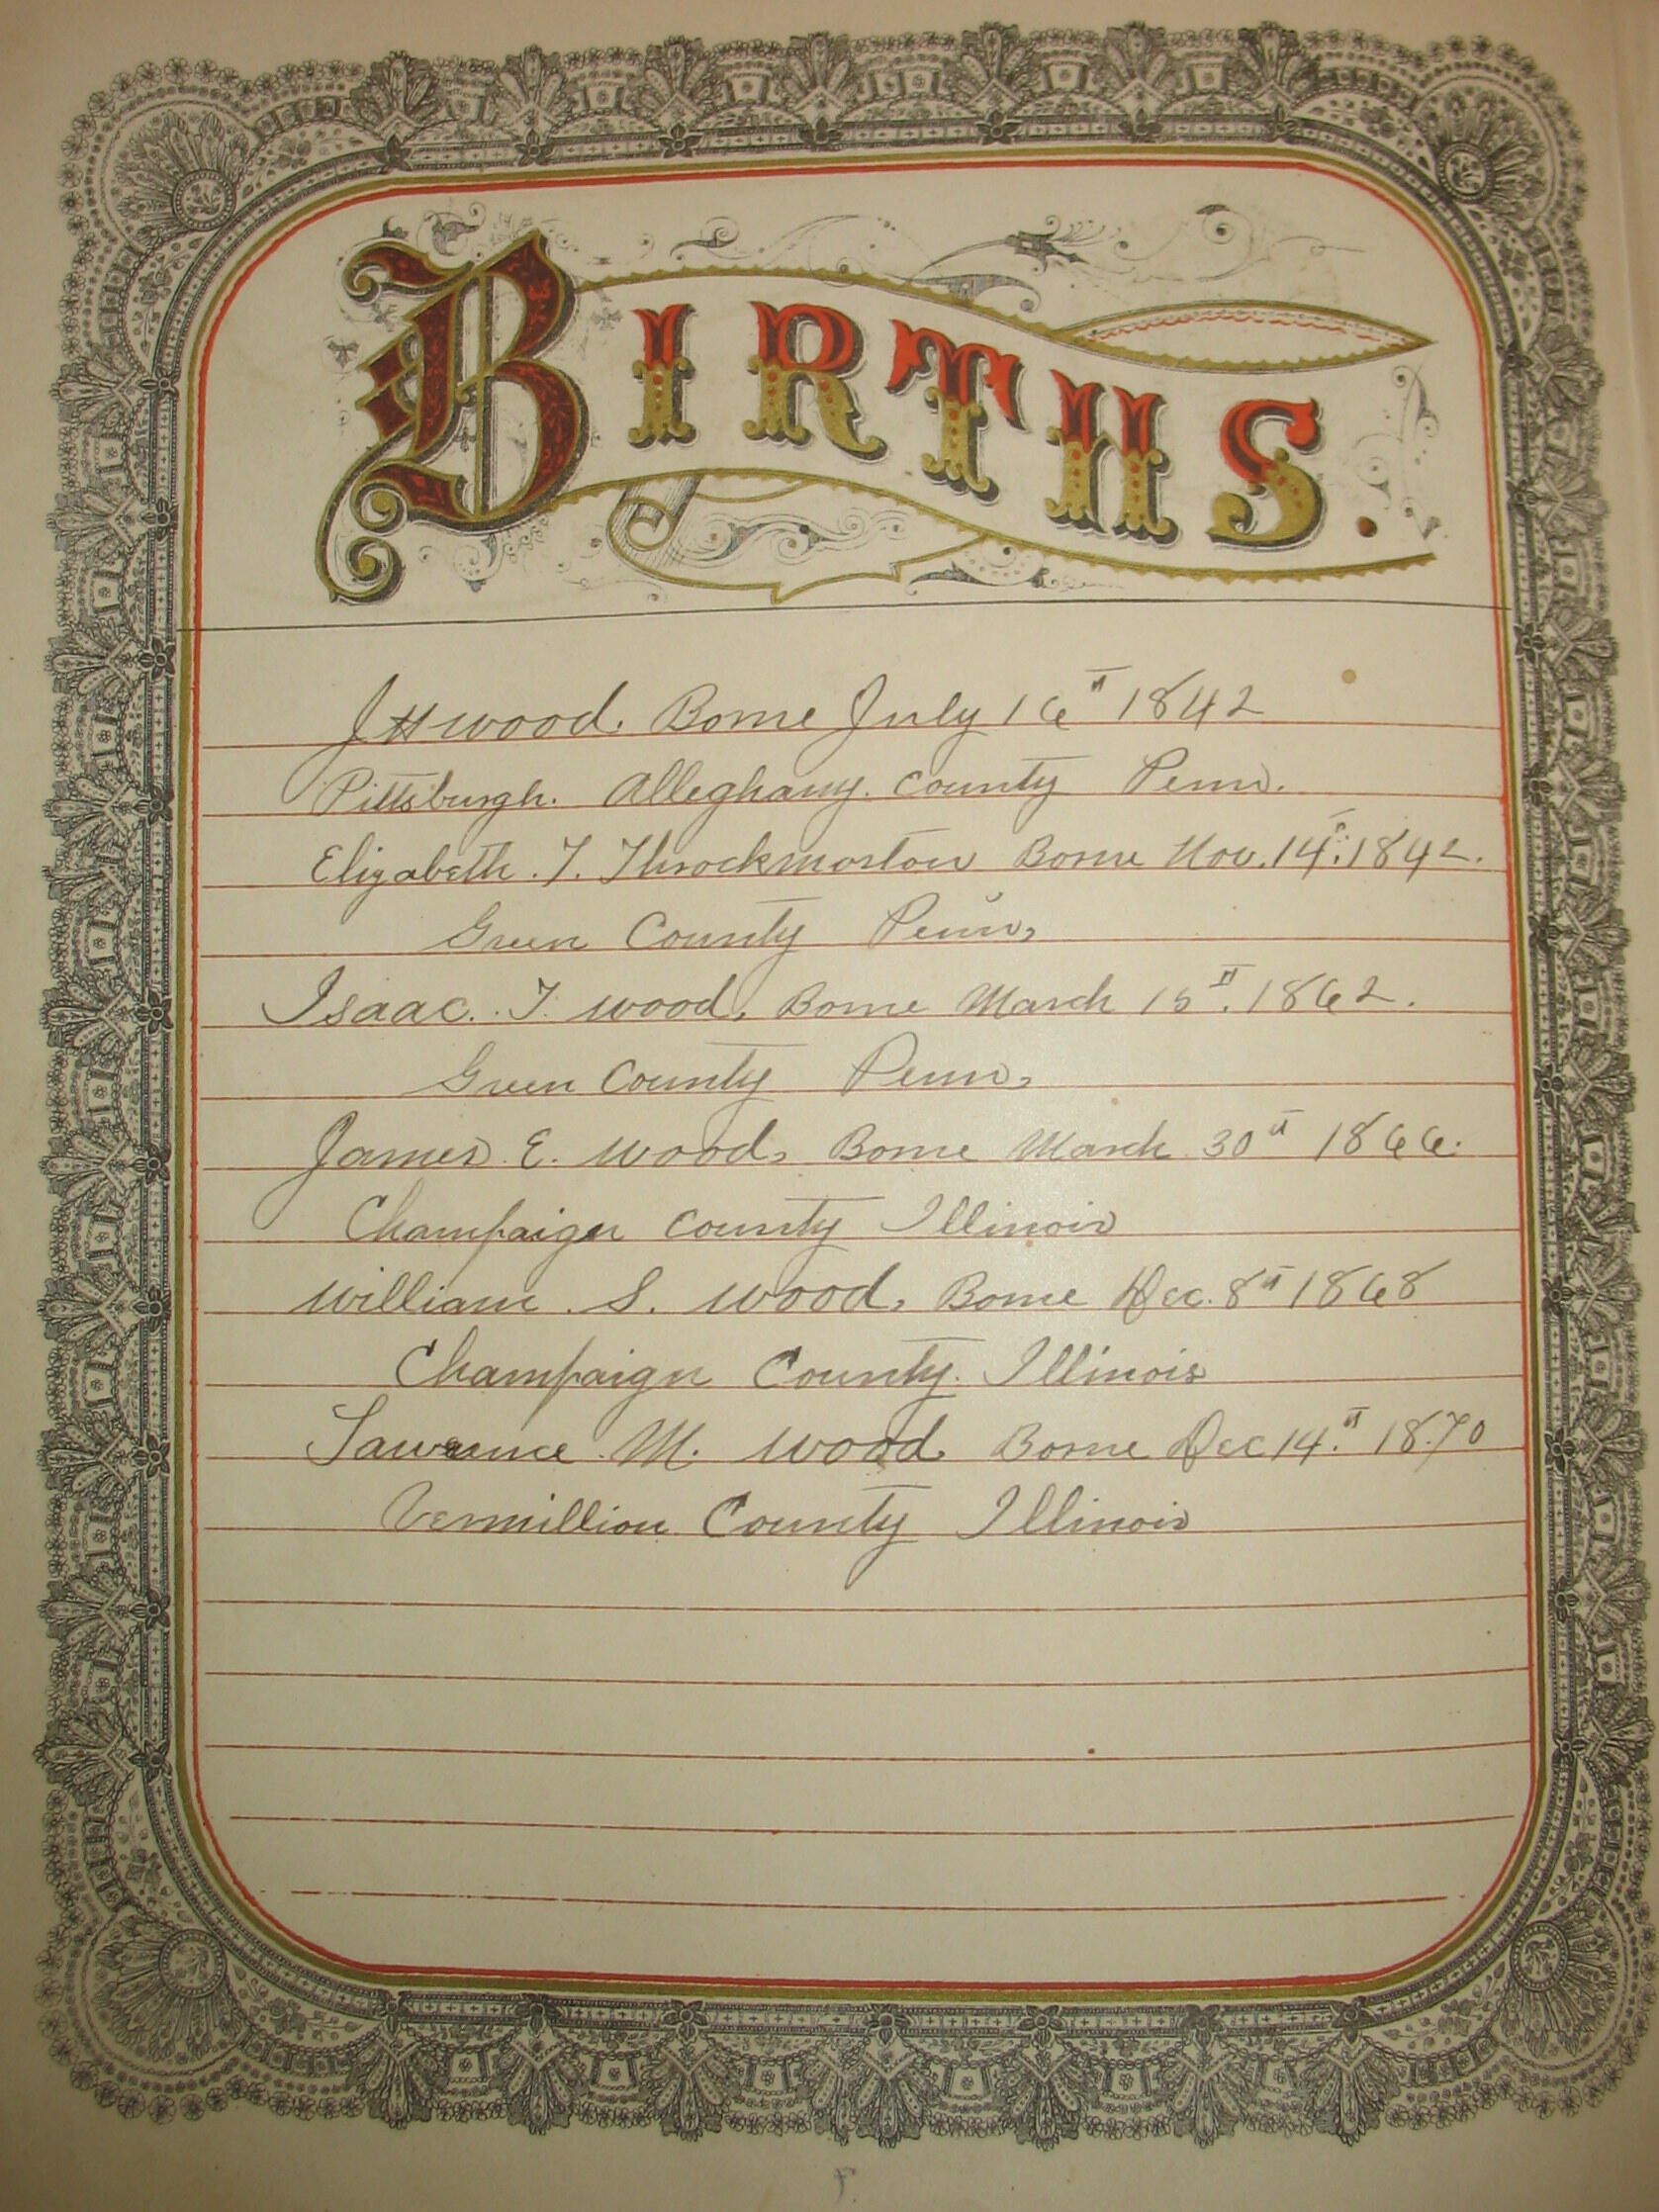 BIRTHS.
J H wood. Borne July 16th 1842
Pittsburgh. Alleghany. County Penn.
Elizabeth. T. Throckmorton Borne Nov. 14th. 1842.
Green County Penn,
Isaac. T. wood, Borne March 15th. 1862.
Green County Penn,
James. E. wood, Borne March 30th 1866.
Champaign County Illinois
William. S. wood, Borne Dec. 8th 1868
Champaign County. Illinois
Lawrence. M. wood. Borne Dec 14.th 1870
Vermillion County Illinois